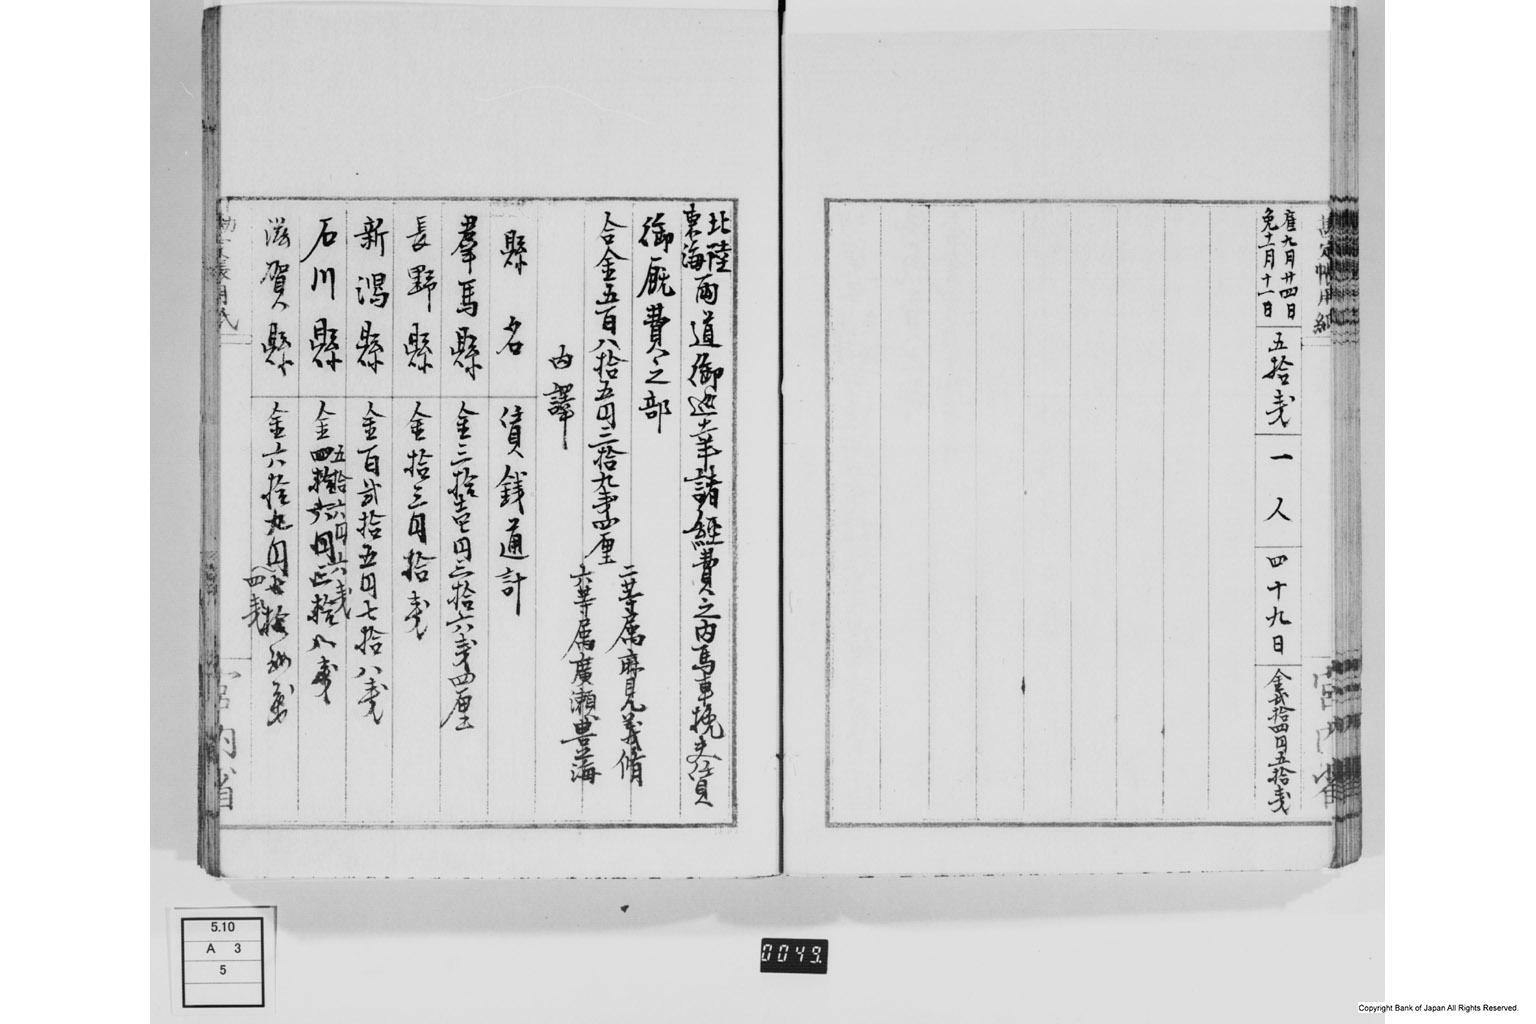 雇九月廿四日
免十一月十一日
五拾銭
一人
四十九日
金弐拾四円五拾銭
宮内省
北陸
東海
両道御巡幸諸経費之内馬車挽夫賃
御厩費之部
合金五百八拾五円三拾九銭四厘
二等属麻見義脩
六等属廣瀬豊海
内譯
縣名
賃銭通計
羣馬縣
金三拾壱円三拾六銭四厘
長野縣
金拾三円拾銭
新潟縣
金百弐拾五円七拾八銭
石川縣
五拾六円六銭
滋賀縣
金六拾九円
四銭
宮内省
5.10
A 3
5
0049.
Copyright Bank of Japan All Rights Reserved.